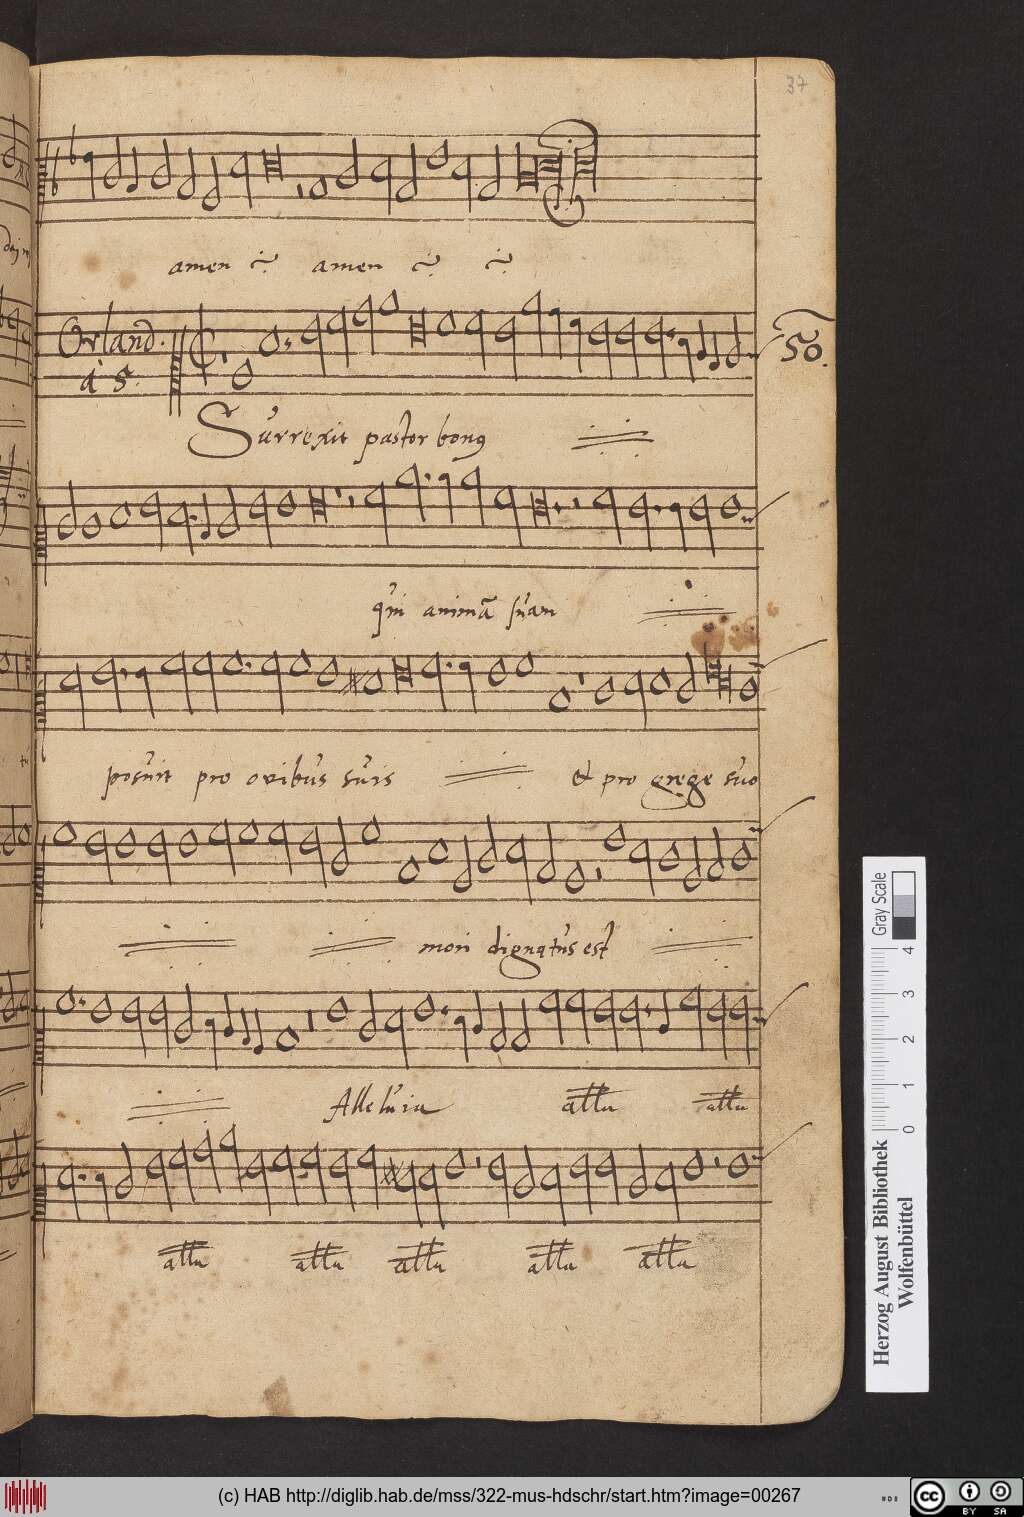 37
amen amen
Orland.
à 5.
50.
Surrexit pastor bonq
qui animā suam
posuit pro ovibus suis & pro grege suo
mori dignatus est
Alleluia alla alla
alla alla alla alla alla
Gray Scale
0 1 2 3 4
Herzog August Bibliothek
Wolfenbüttel
(c) HAB http://diglib.hab.de/mss/322-mus-hdschr/start.htm?image=00267
cc BY SA